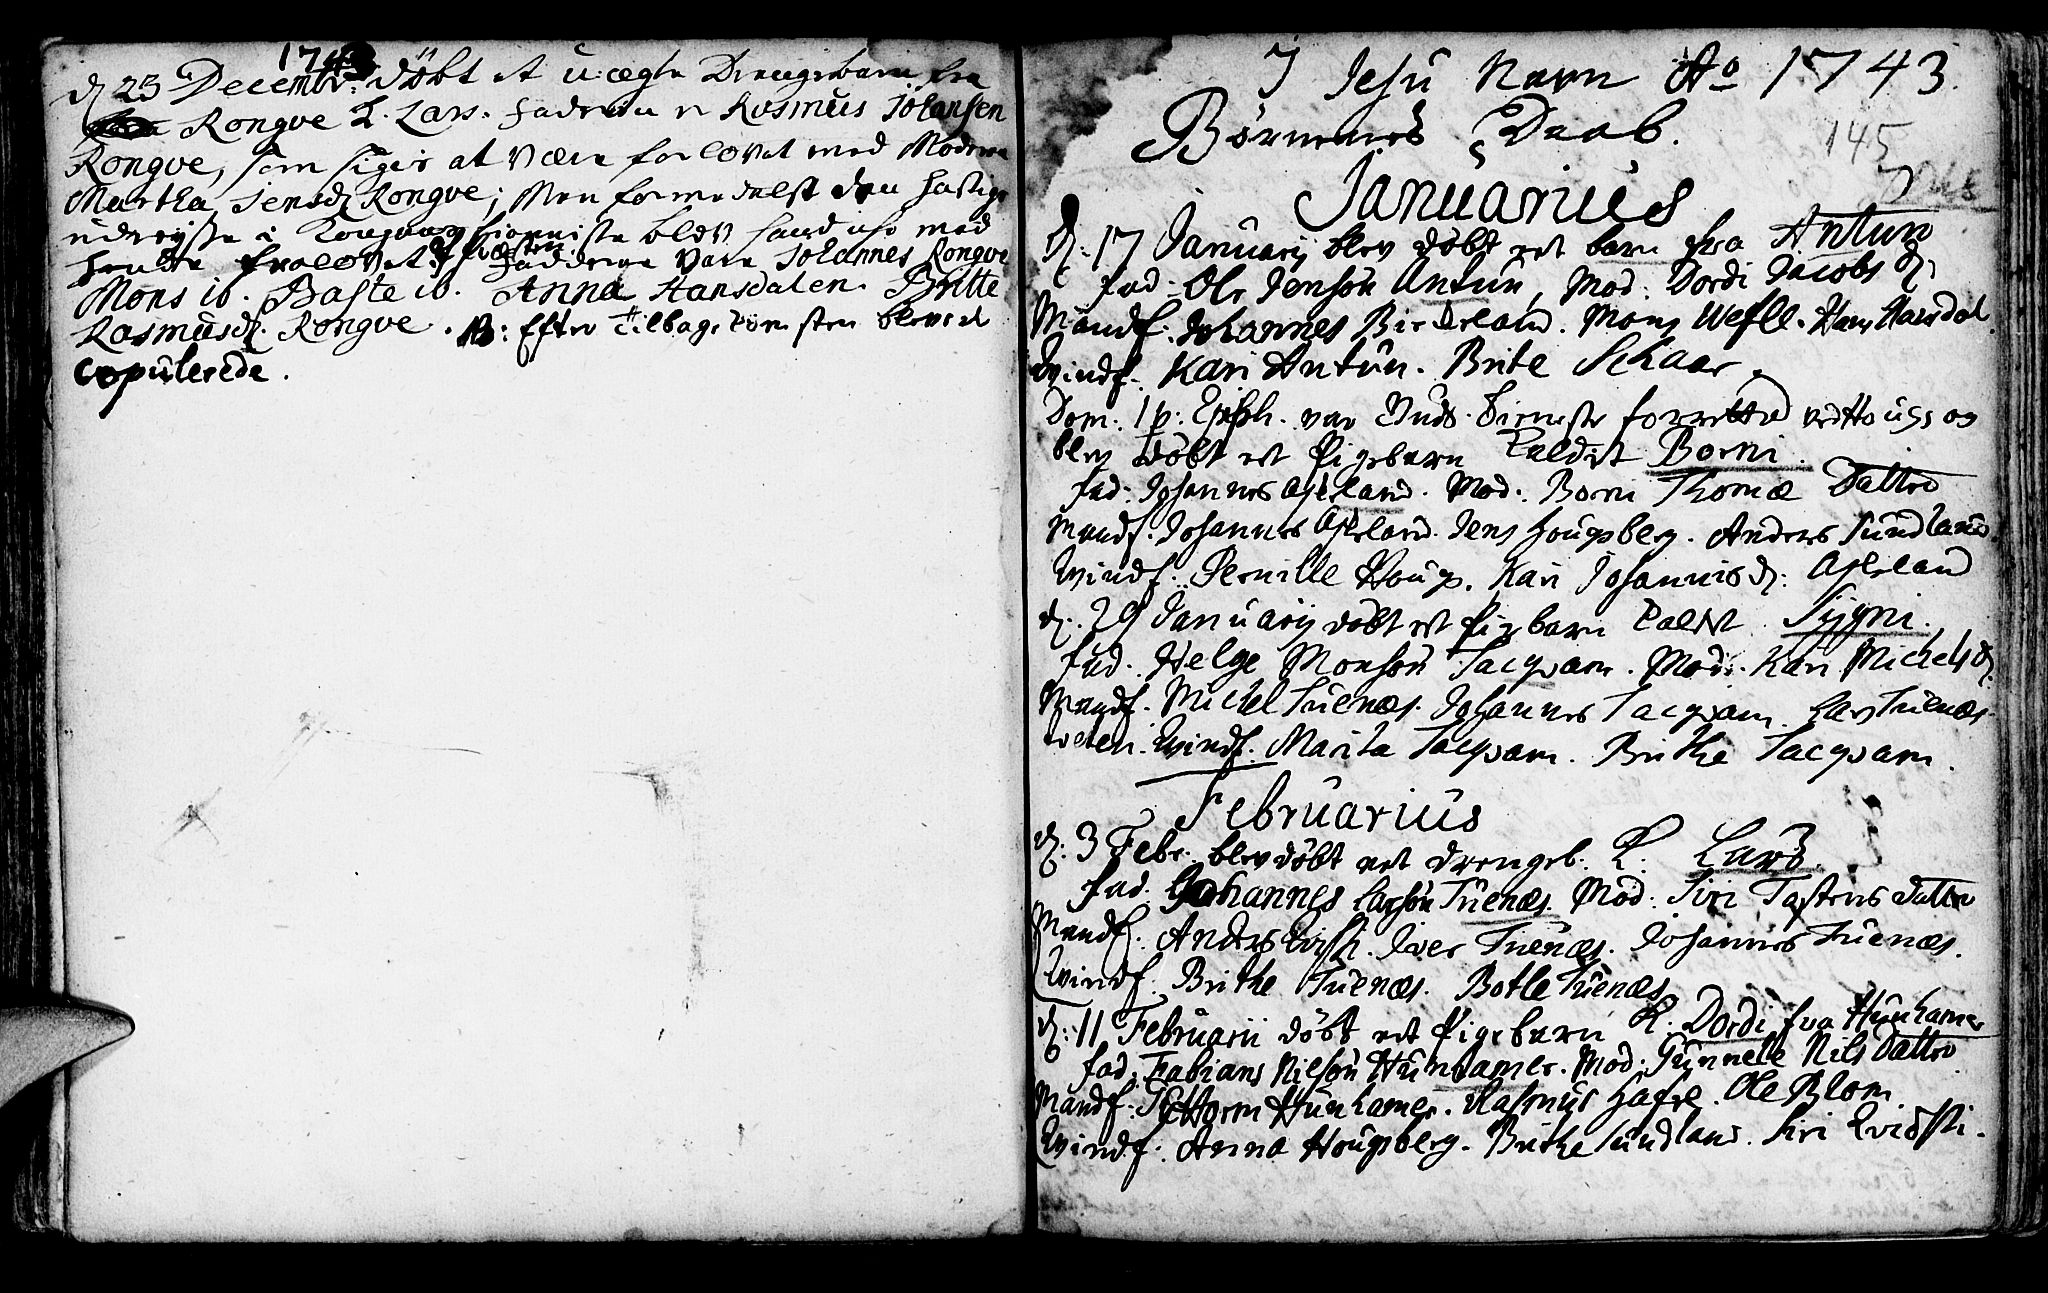 1743
d 23 Decembr: döbt et u:ægte Drengebarn fra
Rongve K. Lars. Faderen er Rasmus Johansen
Rongve, som siges at være forlovet med Moderen
Martha Jensd Rongve; Men formedelst den hastige
udreyse i Kongens tieniste blev hand icke med
hende trolovet. Fadderne vare Johannes Rongve
Mons ib. Baste ib. Anna Hansdalen. Britte
Rasmusd: Rongve. NB: Efter Tilbagekomsten bleve de
copulerede.
I Jesu Navn Ao 1743.
Børnenes Daab.
145
Januarius
d: 17 Januarij blev døbt et barn fra Antun
fad: Ole Jensøn Antun, Mod: Dordi Jacobs d:
Mandf: Johannes Birkeland. Mons Wefle. Hans Hansdal.
Qvindf: Kari Antun. Brite Skaar.
Dom: 1 p: Epiph. var Guds Tieneste forrettet ved Hougs og
blev døbt et Pigebarn kaldet Borni.
fad: Johannes Aseland. Mod: Borni Thomæ Datter
Mandf. Johannes Aseland. Jens Hougsberg. Anders Sundland.
Qvindf. Pernille Houg. Kari Johannisd: Aseland
d: 29 Januarij døbt et Pigebarn kaldet Sygni.
fad. Helge Monsøn Tacqvam. Mod: Kari Michelsd.
Mandf. Michel Tuenæs. Johannes Tacqvam. Lars Tuenæs-
tveten. Qvindf. Marita Tacqvam. Brithe Tacqvam.
Februarius
d: 3 Febr. blev döbt et drengeb. K. Lars.
fad. Johannes Larsøn Tuenæs. Mod: Siri Tostens datter
Mandf. Anders Qvisti. Iver Tuenæs. Johannes Tuenæs.
Qvindf. Brithe Tuenæs. Botle Tuenæs
d: 11 Februarii döbt et Pigebarn K. Dordi fra Hunhamer
fad: Fabians Nilsøn Hunhamer. Mod: Gunnele Nils Datter
Mandf: Guttorm Hunhamer. Rasmus Hafre. Ole Blom.
Qvindf: Anna Hougsberg. Brithe Sundland. Siri Qvisti.